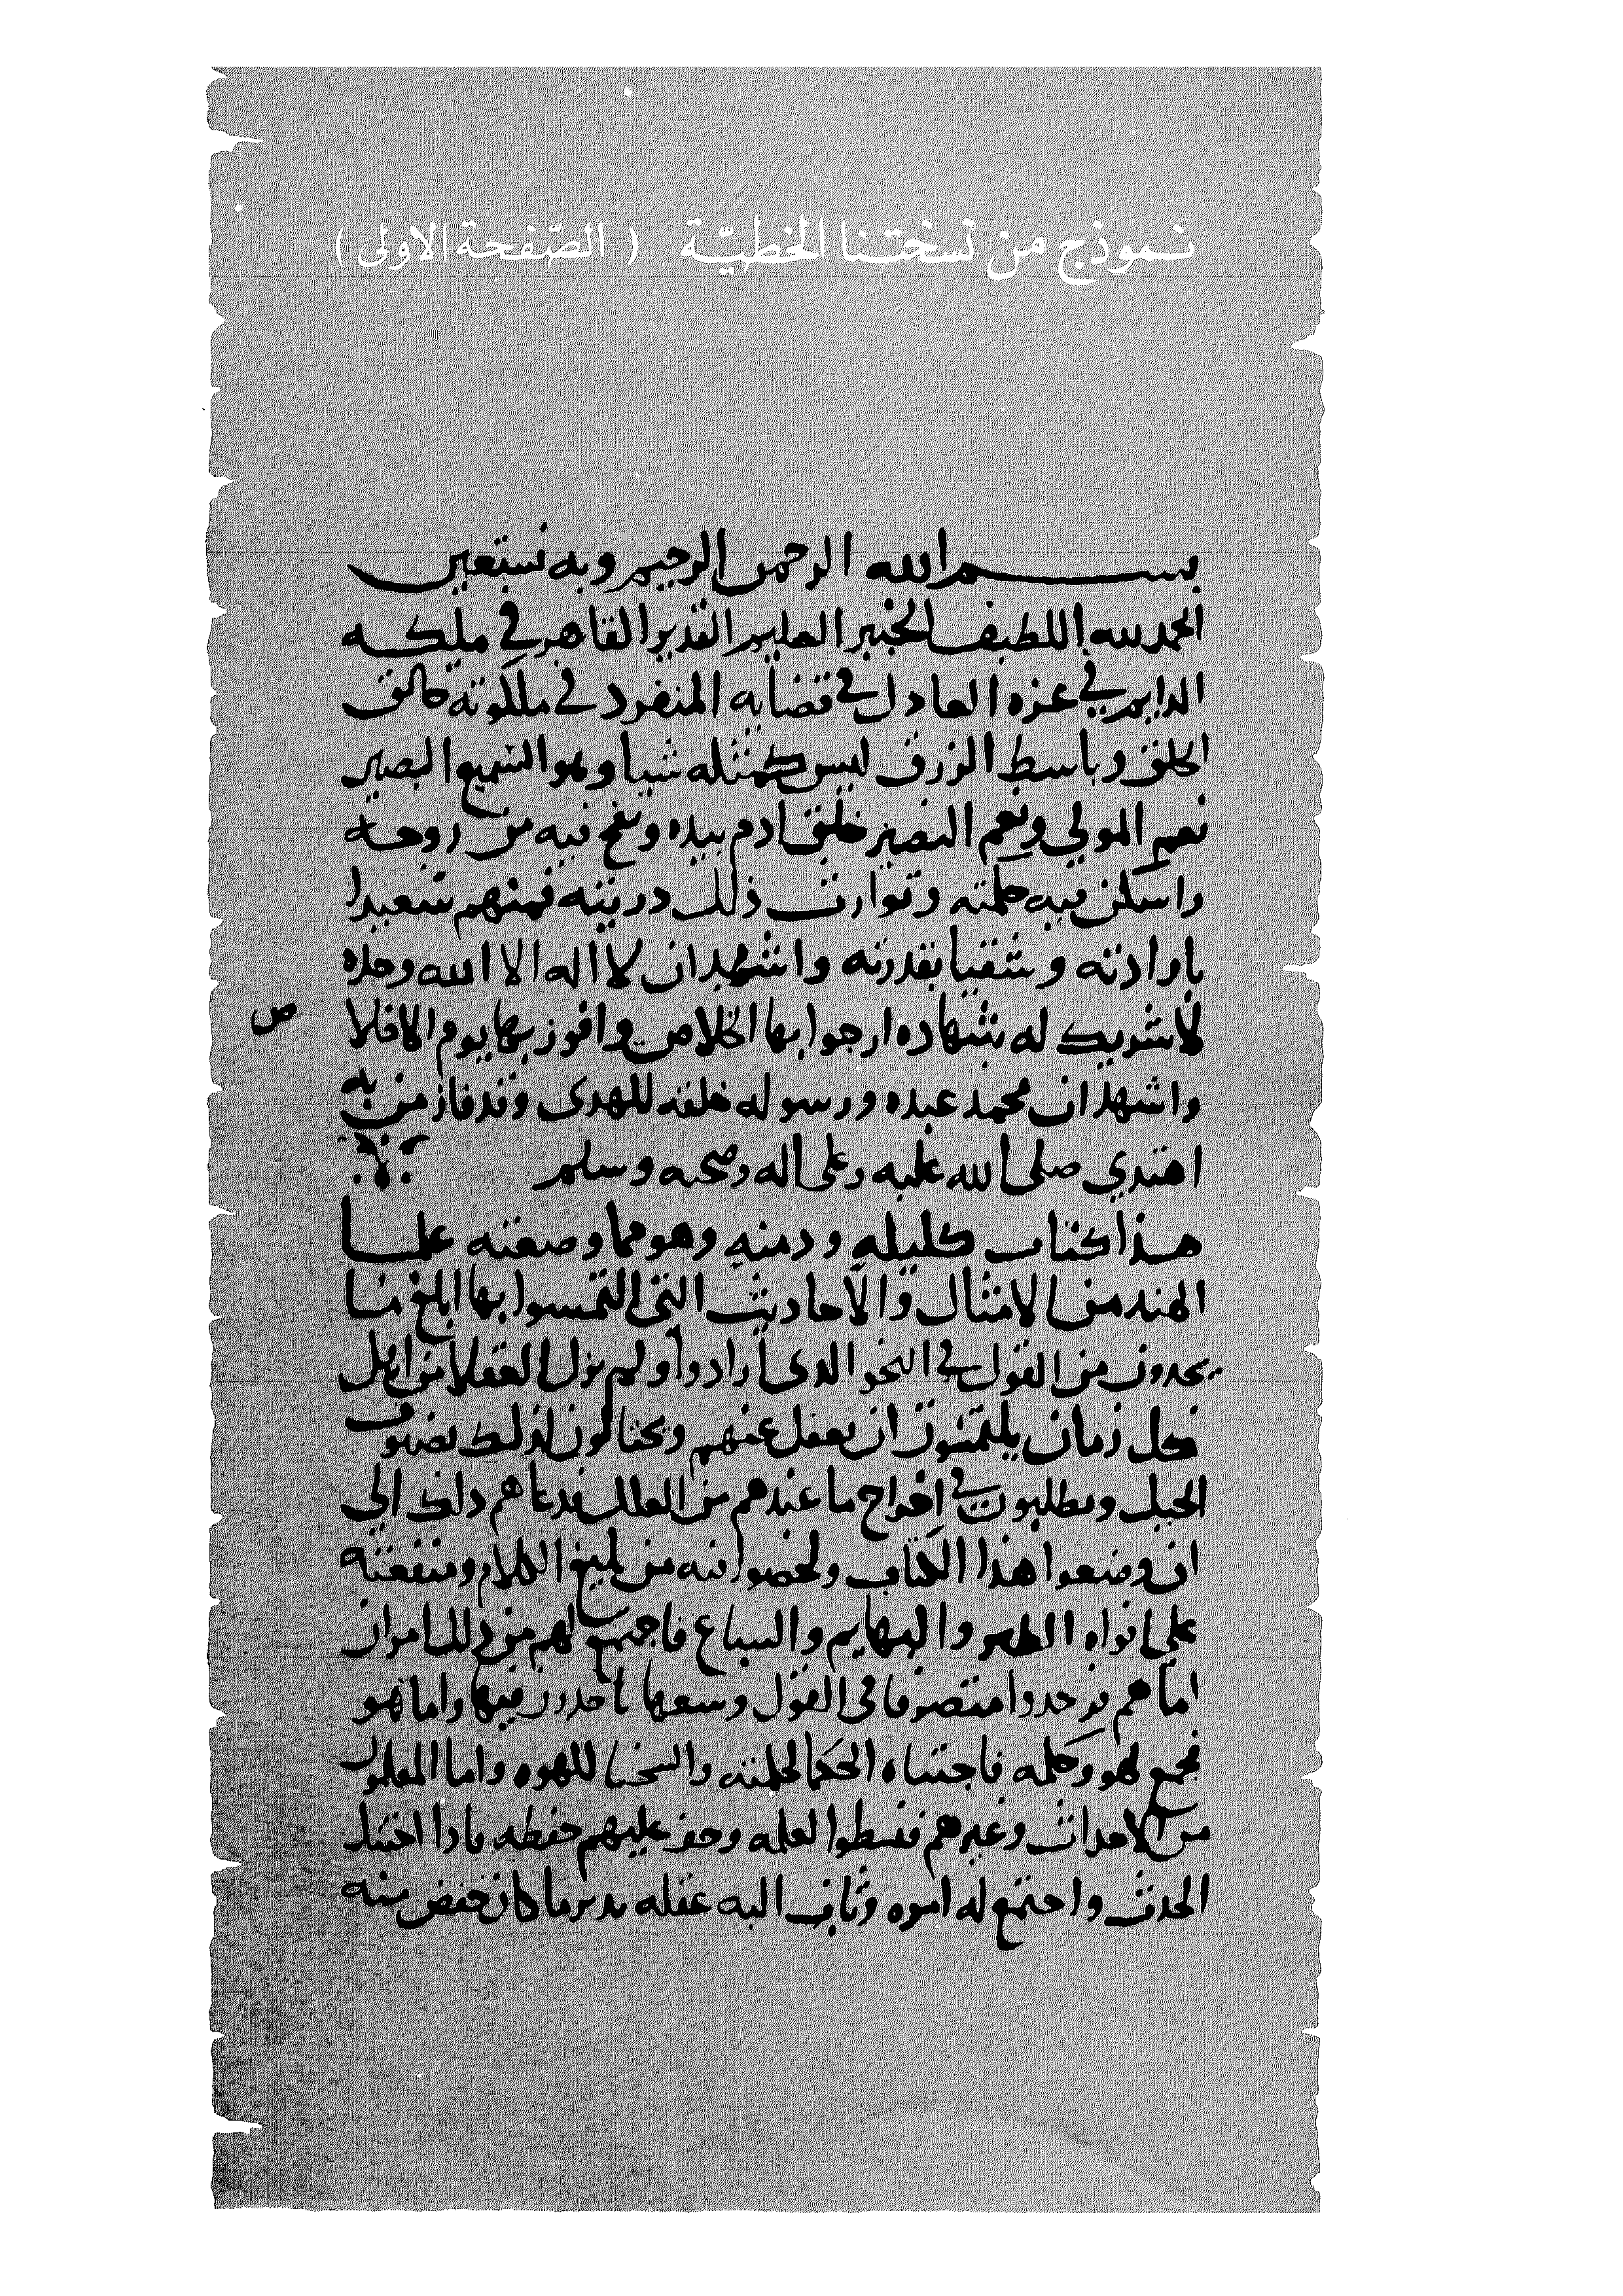 نموذج من نسختنا الخطيّة ( الصّفحة الاولى )
بسم الله الرحمن الرحيم وبه نستعين
الحمد لله اللطيف الخبير العليم القدير القاهر في ملكه
الدايم في عزه العادل في قضايه المنفرد في ملكوته خالق
الخلق وباسط الرزق ليس كمثله شيا وهو السميع البصير
نعم المولي ونعم النصير خلق ادم بيده ونفخ فيه من روحه
واسكن فيه حكمته وتوارث ذلك دريته فمنهم سعيدا
بارادته وشقيا بقدرته واشهد ان لا اله الا الله وحده
لا شريك له شهاده ارجوا بها الخلاص وافوز بها يوم الاخلا
ص
واشهد ان محمد عبده ورسوله خلقه للهدى وقد فاز من به
اهتدي صلى الله عليه وعلى اله وصحبه وسلم
هذا كتاب كليله ودمنه وهو مما وضعته علما
الهند من الامثال والاحاديث التي التمسوا بها ابلغ ما
يجدون من القول في النحو الدى ارادوا ولم يزل العقلا من اهل
كل زمان يلتمسون ان يعقل عنهم ويحتالون لذلك بصنوف
الحيل ويطلبون في اخراج ما عندهم من العلل فدعاهم دلك الي
ان وضعوا هذا الكتاب ولخصوا فيه من بليغ الكلام ومتقنه
على افواه الطير والبهايم والسباع فاجتمع لهم من ذلك امران
اما هم فوجدوا متصرفا في القول وشعبا ياخدون فيها واما هو
فجمع لهو وحكمه فاجتباه الحكما لحكمته والسخفا للهوه واما المتعلمون
من الاحداث وغيرهم فنشطوا لعلمه وخف عليهم حفظه فادا احتنك
الحدث واجتمع له اموره وثاب اليه عقله تدبر ما كان حفض منه